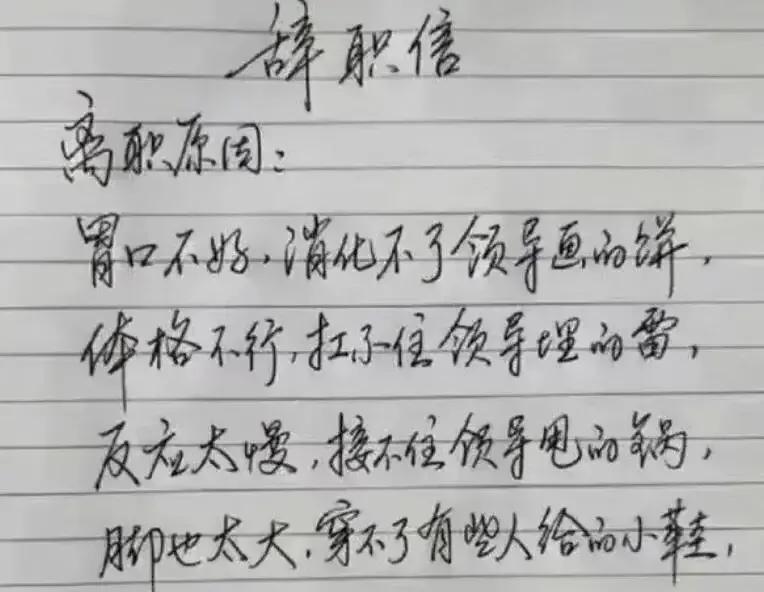 辞职信
离职原因：
胃口不好，消化不了领导画的饼，
体格不行，扛不住领导埋的雷，
反应太慢，接不住领导甩的锅，
脚也太大，穿不了有些人给的小鞋，